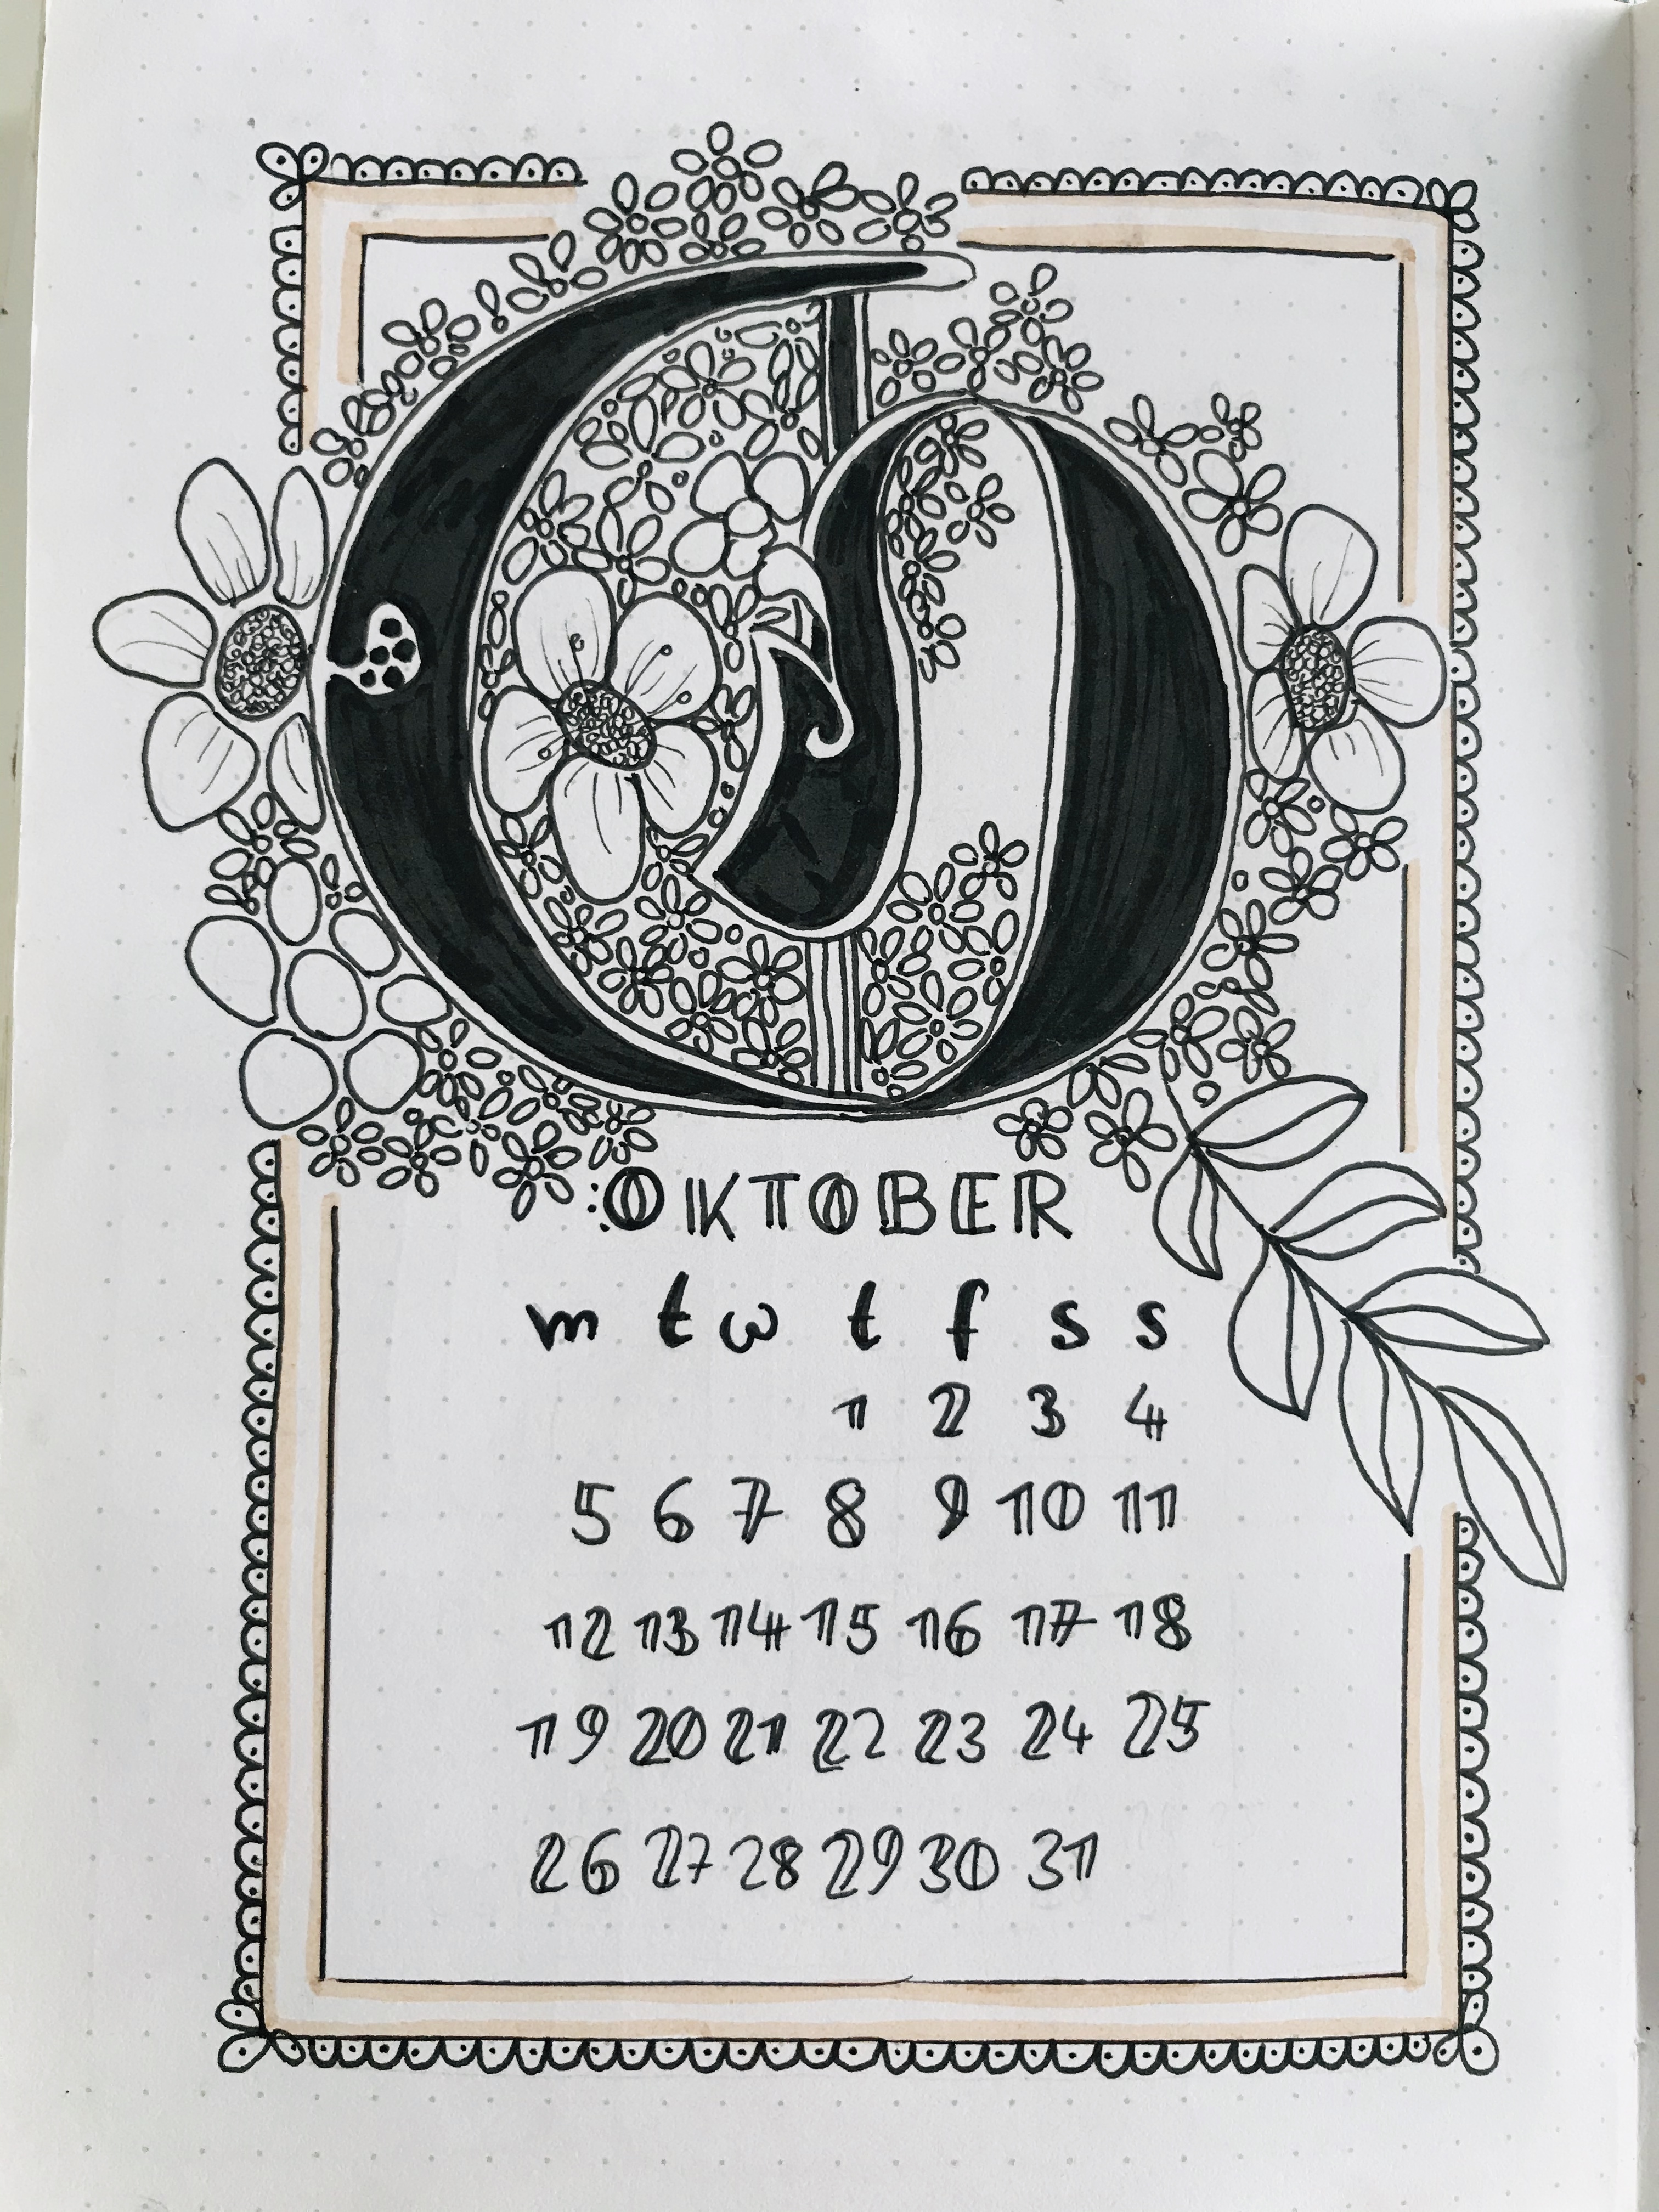 O
OKTOBER
m t w t f s s
1 2 3 4
5 6 7 8 9 10 11
12 13 14 15 16 17 18
19 20 21 22 23 24 25
26 27 28 29 30 31